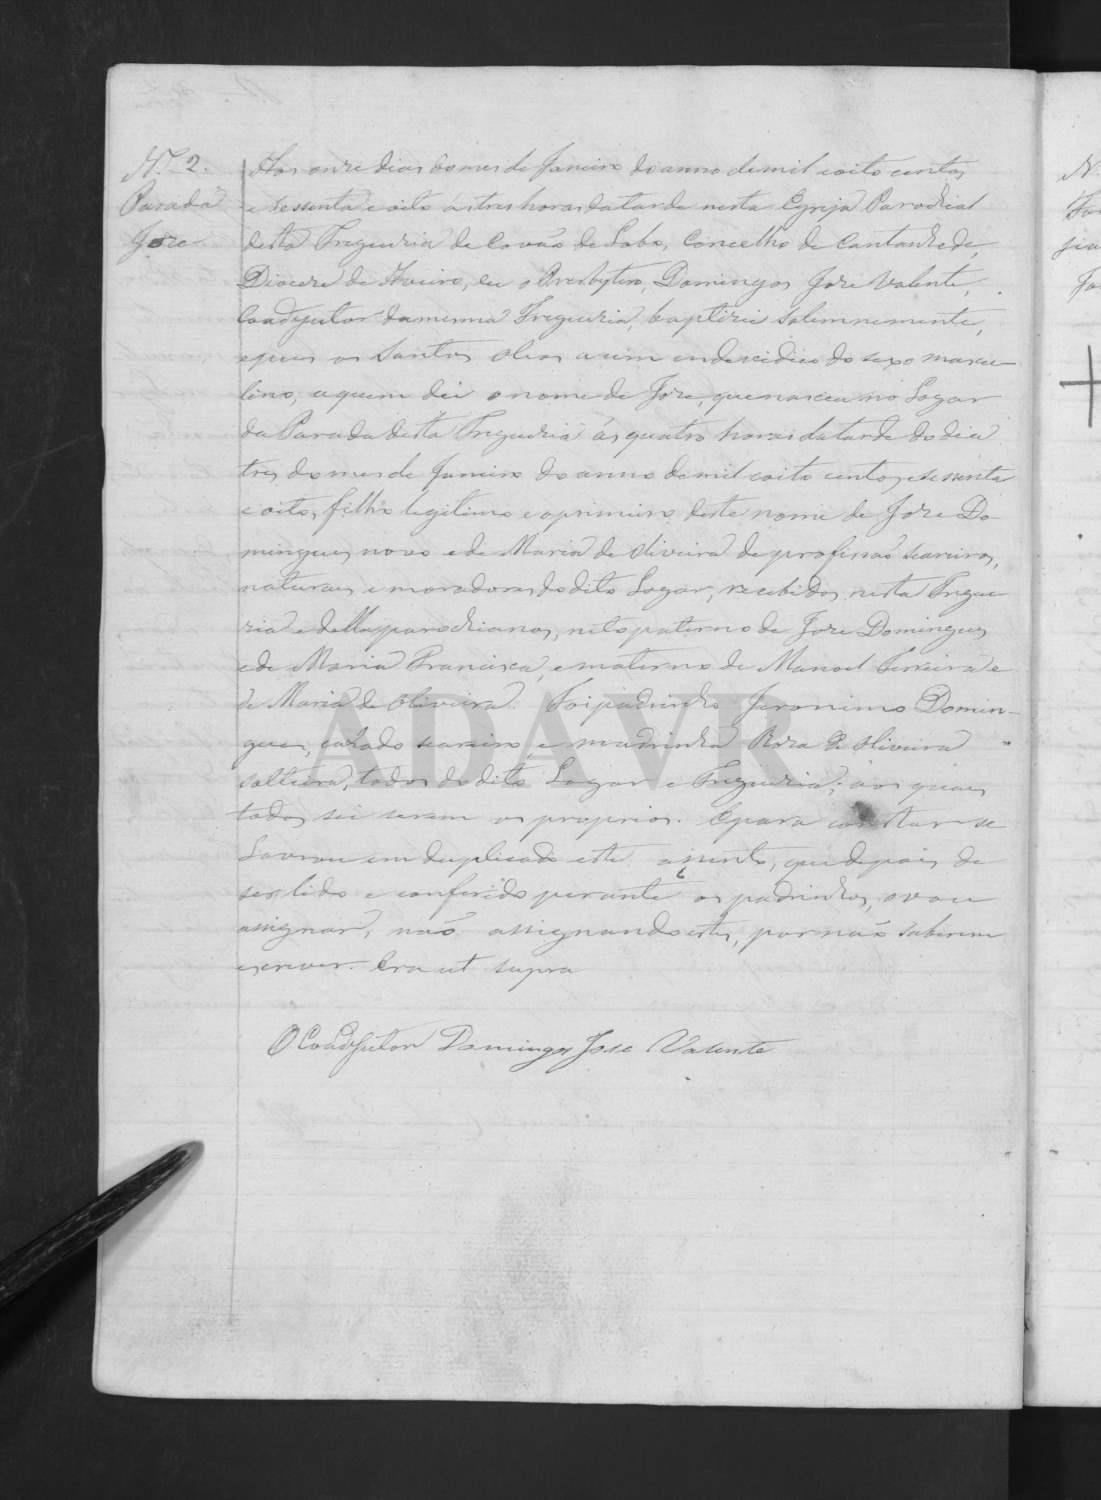 N.º 2.
Parada
Joze
Aos onze dias do mes de Janeiro do anno de mil e oito centos
e sessenta e oito ás tres horas da tarde nesta Egreja Parochial
desta Freguezia de Covão do Lobo, Concelho de Cantanhede,
Diocese de Aveiro, eu o Presbytero, Domingos Joze Valente,
Coadjutor da mesma Freguezia, baptizei solemnemente,
e puz os Santos oleos a um individuo do sexo mascu-
lino, a quem dei o nome de Joze, que nasceu no Lugar
da Parada desta Freguezia ás quatro horas da tarde do dia
tres do mes de Janeiro do anno de mil e oito centos e sessenta
e oito, filho legitimo e o primeiro deste nome de Joze Do-
mingues novo e de Maria de Oliveira de profissão seareiros,
naturaes e moradores do dito Lugar, recebidos nesta Fregue-
zia e della parochianos, neto paterno de Joze Domingues
e de Maria Francisca, e materno de Manoel Ferreira e
de Maria de Oliveira. Foi padrinho Jeronimo Domin-
gues, cazado seareiro, e madrinha Roza de Oliveira
solteira, todos do dito Lugar e Freguezia; aos quaes
todos sei serem os proprios. E para constar se
Lavrou em duplicado este assento, que depois de
ser lido e conferido perante os padrinhos, o vou
assignar, não assignando estes, por não saberem
escrever. Era ut supra
O Coadjutor Domingos Joze Valente
ADAVR
N.